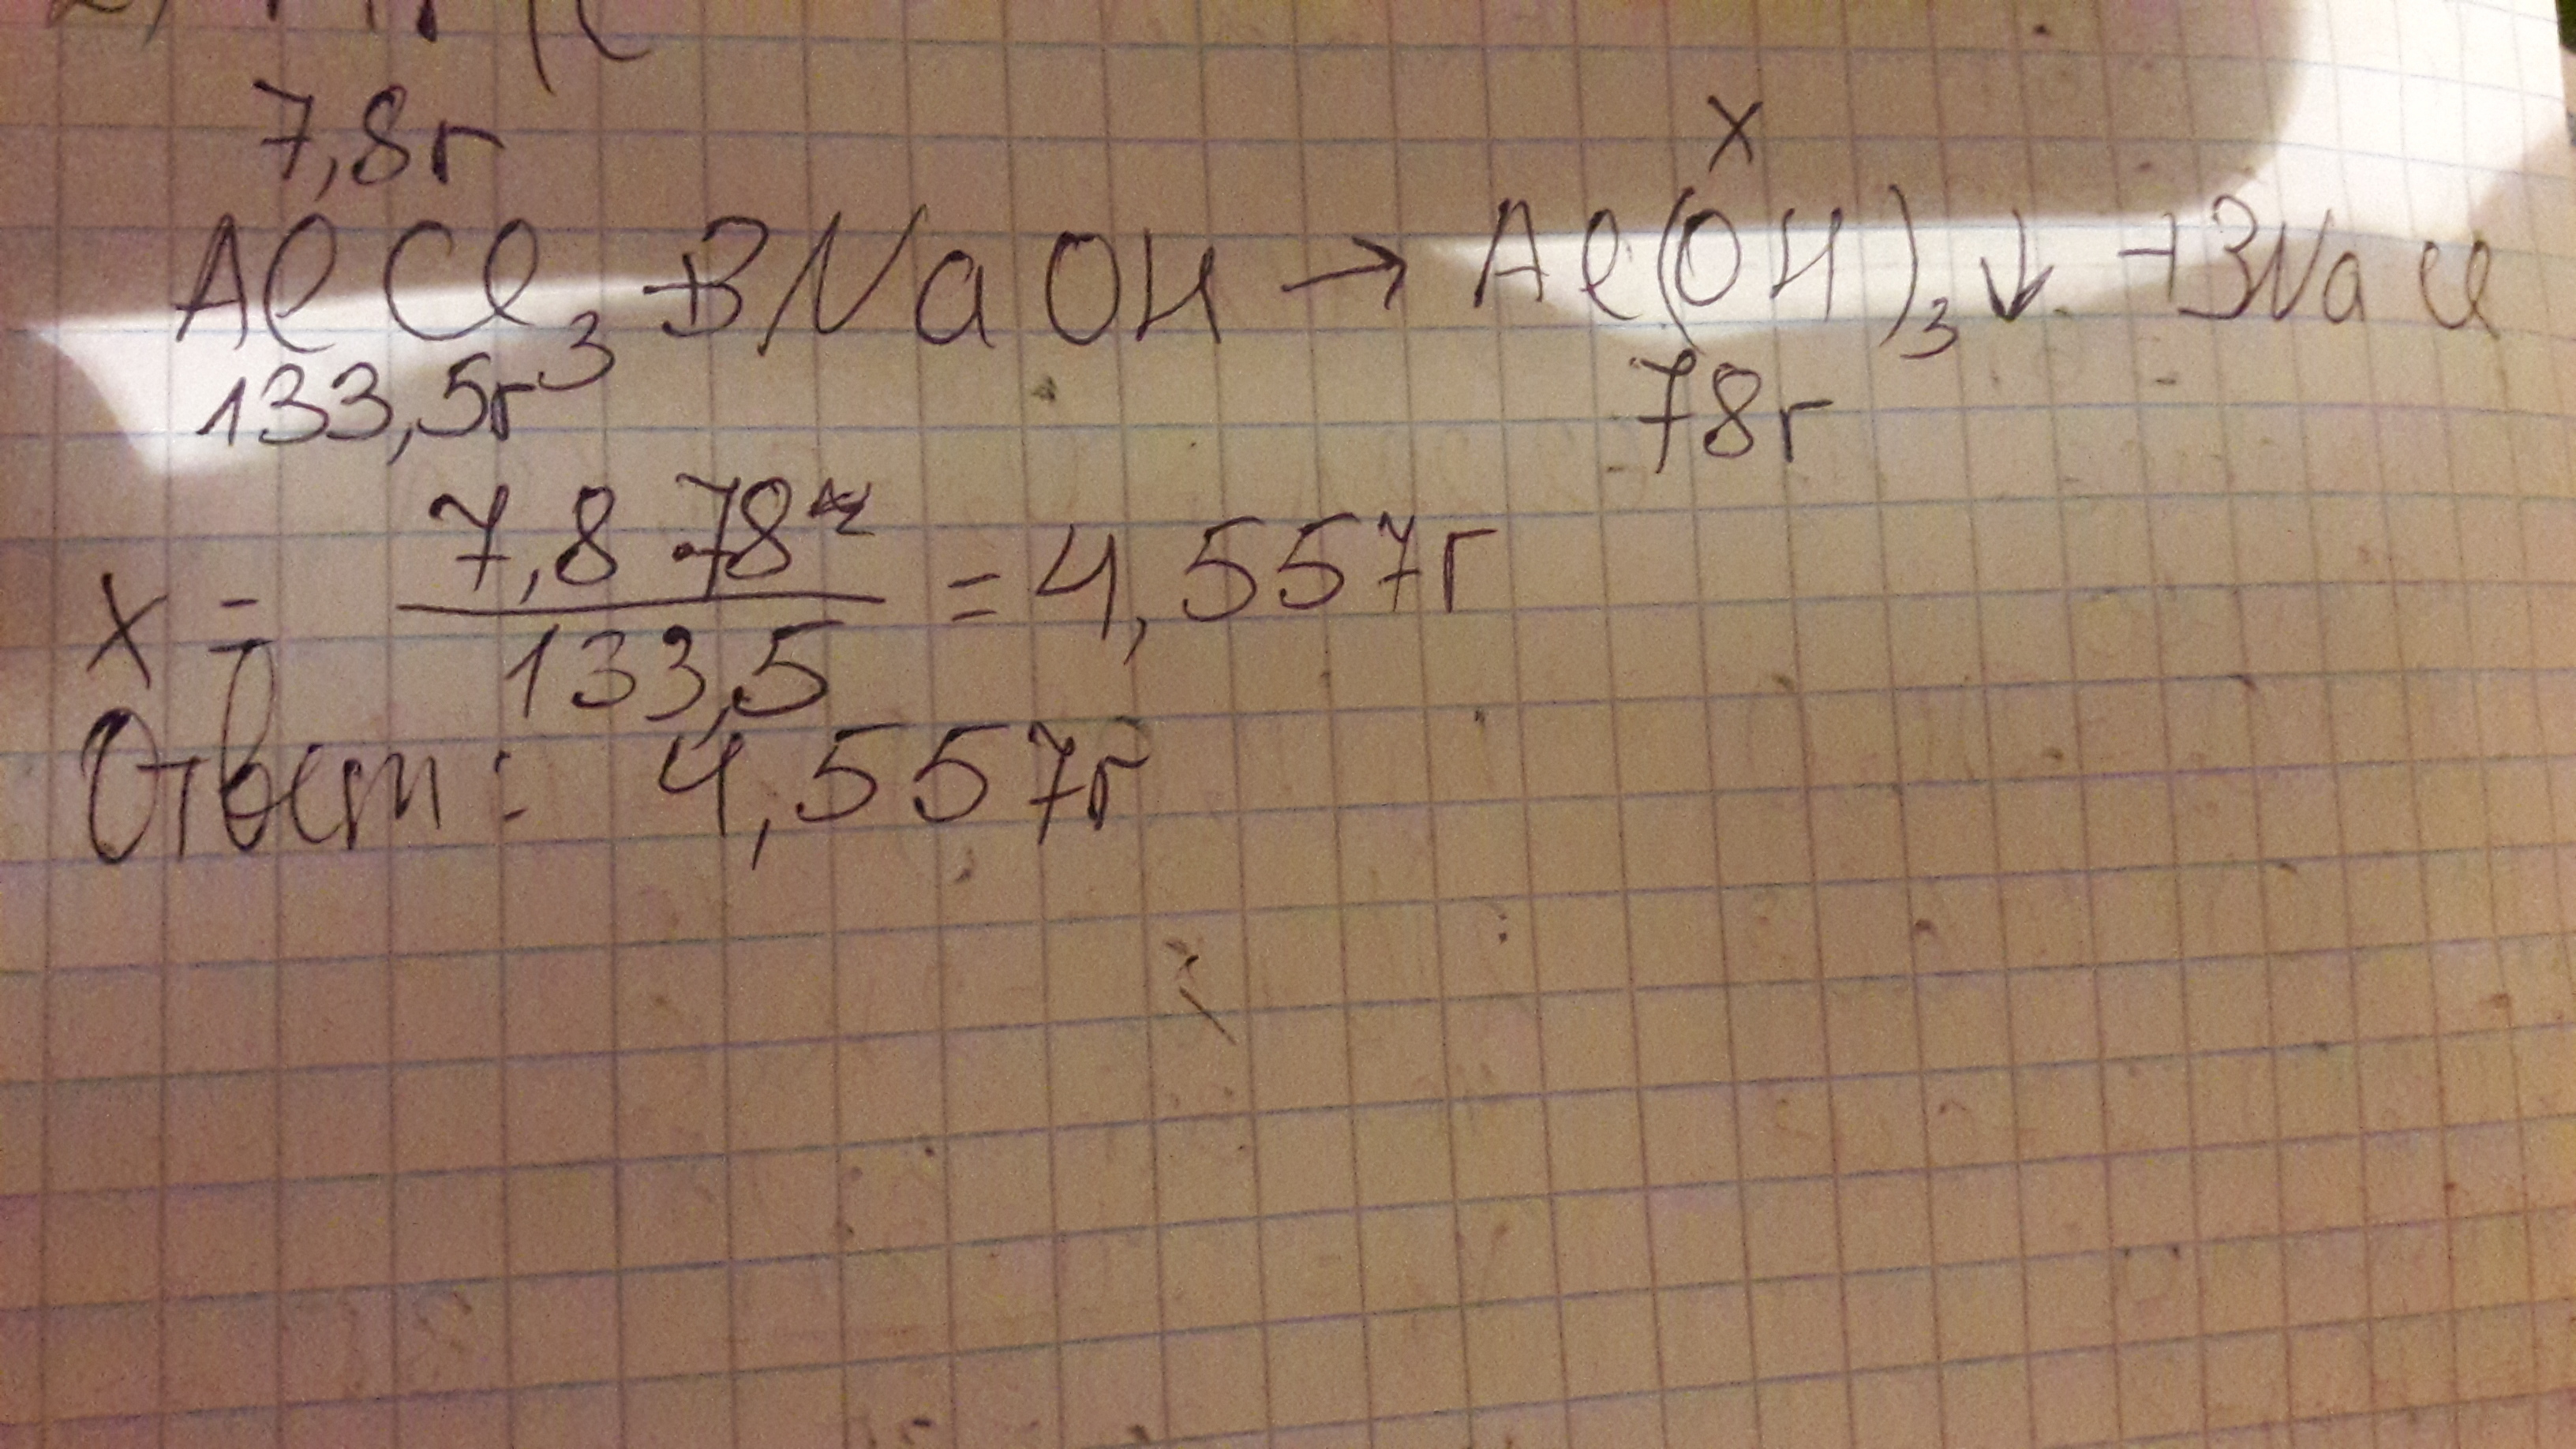 7,8г
x
AlCl₃ + 3NaOH → Al(OH)₃↓ + 3NaCl
133,5г
78г
x = 7,8 · 78 / 133,5 = 4,557г
Ответ: 4,557г